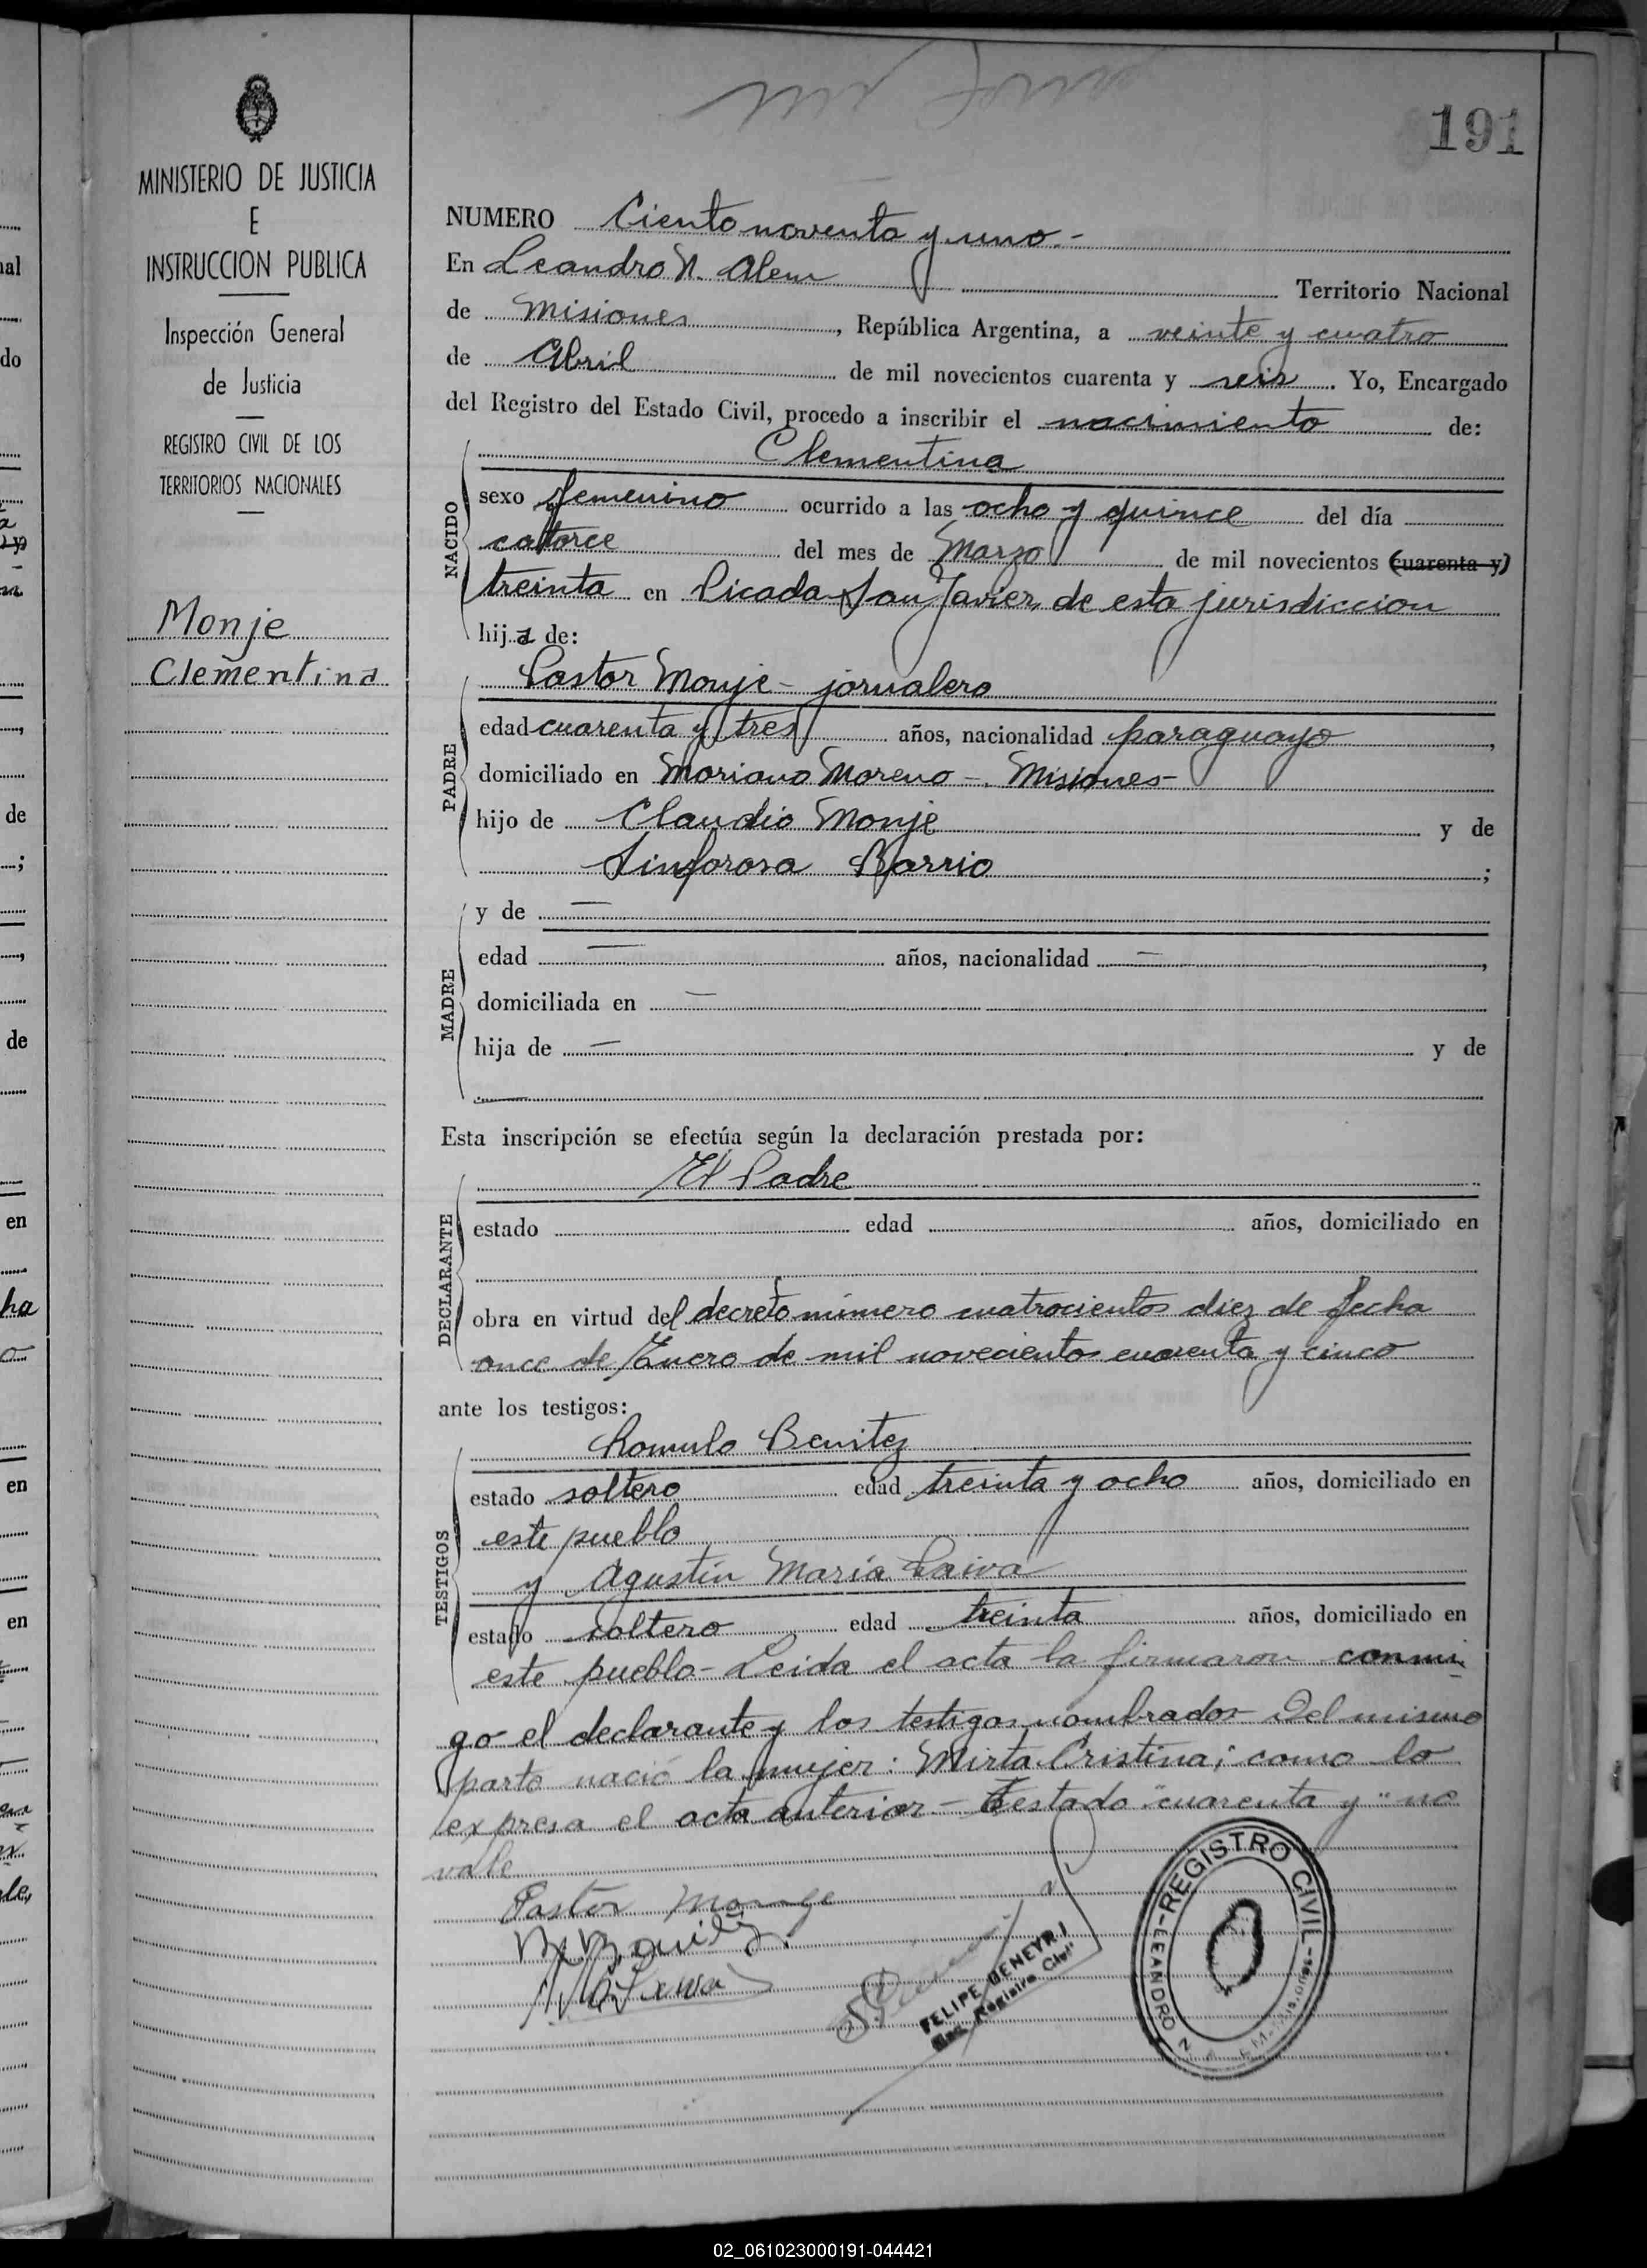 191
MINISTERIO DE JUSTICIA
E
INSTRUCCION PUBLICA
Inspección General
de Justicia
REGISTRO CIVIL DE LOS
TERRITORIOS NACIONALES
Monje
Clementina
NUMERO Ciento noventa y uno.-
En Leandro N. Alem Territorio Nacional
de Misiones, República Argentina, a veinte y cuatro
de Abril de mil novecientos cuarenta y seis. Yo, Encargado
del Registro del Estado Civil, procedo a inscribir el nacimiento de:
Clementina
NACIDO
sexo femenino ocurrido a las ocho y quince del día
catorce del mes de Marzo de mil novecientos (cuarenta y)
treinta en Picada San Javier de esta jurisdiccion
hija de:
Pastor Monje - jornalero
PADRE
edad cuarenta y tres años, nacionalidad paraguayo,
domiciliado en Mariano Moreno - Misiones-
hijo de Claudio Monje y de
Sinforosa Barrio;
MADRE
y de —
edad — años, nacionalidad —,
domiciliada en —
hija de — y de
Esta inscripción se efectúa según la declaración prestada por:
El Padre
DECLARANTE
estado edad años, domiciliado en
obra en virtud del decreto número cuatrocientos diez de fecha
once de Enero de mil novecientos cuarenta y cinco
ante los testigos:
Romulo Benitez
TESTIGOS
estado soltero edad treinta y ocho años, domiciliado en
este pueblo
y Agustin María Paiva
estado soltero edad treinta años, domiciliado en
este pueblo - Leida el acta la firmaron conmi
go el declarante y los testigos nombrados - Del mismo
parto nació la mujer: Mirta Cristina; como lo
expresa el acta anterior - Testado "cuarenta y" no
vale
Pastor Monje
FELIPE BENEYR
Enc. Registro Civil
REGISTRO CIVIL - LEANDRO N.
02_061023000191-044421